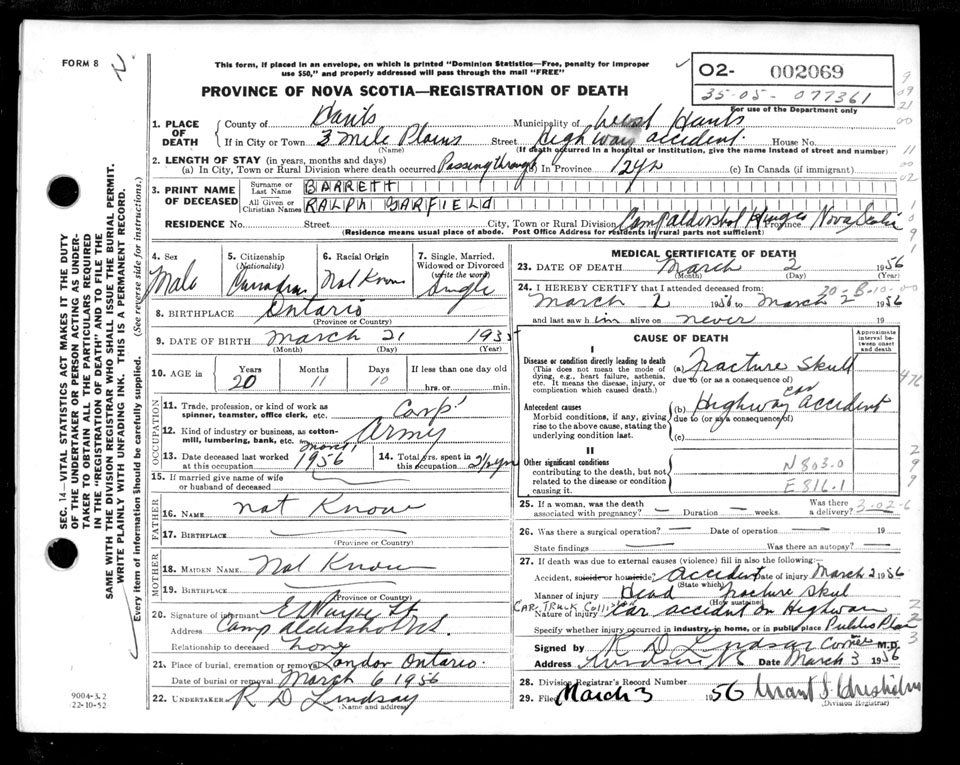 FORM 8
2
This form, if placed in an envelope, on which is printed "Dominion Statistics—Free, penalty for improper
use $50," and properly addressed will pass through the mail "FREE"
PROVINCE OF NOVA SCOTIA—REGISTRATION OF DEATH
02- 002069
35-05-077361
For use of the Department only
1. PLACE OF DEATH County of Hants Municipality of West Hants
If in City or Town 3 Mile Plains Street highway accident House No.
(Name) (If death occurred in a hospital or institution, give the name instead of street and number)
2. LENGTH OF STAY (in years, months and days)
(a) In City, Town or Rural Division where death occurred Passing through (b) In Province 12 yr (c) In Canada (if immigrant)
3. PRINT NAME OF DECEASED Surname or Last Name BARRETT
All Given or Christian Names RALPH GARFIELD
RESIDENCE No. Street City, Town or Rural Division Camp Aldershot Kings Province Nova Scotia
(Residence means usual place of abode. Post Office Address for residents in rural parts not sufficient)
4. Sex Male
5. Citizenship (Nationality) Canadian
6. Racial Origin Not Know
7. Single, Married, Widowed or Divorced (write the word) Single
8. BIRTHPLACE Ontario
(Province or Country)
9. DATE OF BIRTH March 21 1935
(Month) (Day) (Year)
10. AGE in Years 20 Months 11 Days 10 If less than one day old
hrs. or min.
OCCUPATION
11. Trade, profession, or kind of work as spinner, teamster, office clerk, etc. Corp'
12. Kind of industry or business, as cotton-mill, lumbering, bank, etc. Army
13. Date deceased last worked at this occupation March 1956
14. Total yrs. spent in this occupation 2 1/2 yr
15. If married give name of wife or husband of deceased
FATHER
16. Name not Know
17. Birthplace
(Province or Country)
MOTHER
18. Maiden Name Not Know
19. Birthplace
(Province or Country)
20. Signature of informant
Address Camp Aldershot N.S.
Relationship to deceased none
21. Place of burial, cremation or removal London Ontario.
Date of burial or removal March 6 1956
22. Undertaker R D Lindsay
(Name and address)
MEDICAL CERTIFICATE OF DEATH
23. DATE OF DEATH March 2 1956
(Month) (Day) (Year)
20-B-10-00
24. I HEREBY CERTIFY that I attended deceased from:
March 2 1956 to March 2 1956
and last saw him alive on never 19
CAUSE OF DEATH
Approximate interval between onset and death
I
Disease or condition directly leading to death
(This does not mean the mode of dying, e.g., heart failure, asthenia, etc. It means the disease, injury, or complication which caused death.)
(a) Fracture Skull
due to (or as a consequence of)
Antecedent causes
Morbid conditions, if any, giving rise to the above cause, stating the underlying condition last.
(b) Highway car accident
due to (or as a consequence of)
(c)
476
II
Other significant conditions contributing to the death, but not related to the disease or condition causing it.
N 803.0
E 816.1
25. If a woman, was the death associated with pregnancy? — Duration — weeks. Was there a delivery?
3-02-6
26. Was there a surgical operation? — Date of operation — 19
State findings Was there an autopsy? —
27. If death was due to external causes (violence) fill in also the following:
Accident, suicide or homicide? accident Date of injury March 2 1956
(State which)
Manner of injury Head fracture skul
(How sustained)
Car Truck Collision
Nature of injury Car accident on Highway
Specify whether injury occurred in industry, in home, or in public place Public Place
Signed by R D Lindsay Coroner M.D.
Address Windsor NS Date March 3 1956
28. Division Registrar's Record Number
29. Filed March 3 1956 Grant J. Chisholm
(Division Registrar)
SEC. 14—VITAL STATISTICS ACT MAKES IT THE DUTY
OF THE UNDERTAKER OR PERSON ACTING AS UNDER-
TAKER TO OBTAIN ALL THE PARTICULARS REQUIRED
IN THE "REGISTRATION OF DEATH" AND TO FILE THE
SAME WITH THE DIVISION REGISTRAR WHO SHALL ISSUE THE BURIAL PERMIT.
WRITE PLAINLY WITH UNFADING INK. THIS IS A PERMANENT RECORD.
Every item of information should be carefully supplied. (See reverse side for instructions.)
9004-3.2
22-10-52